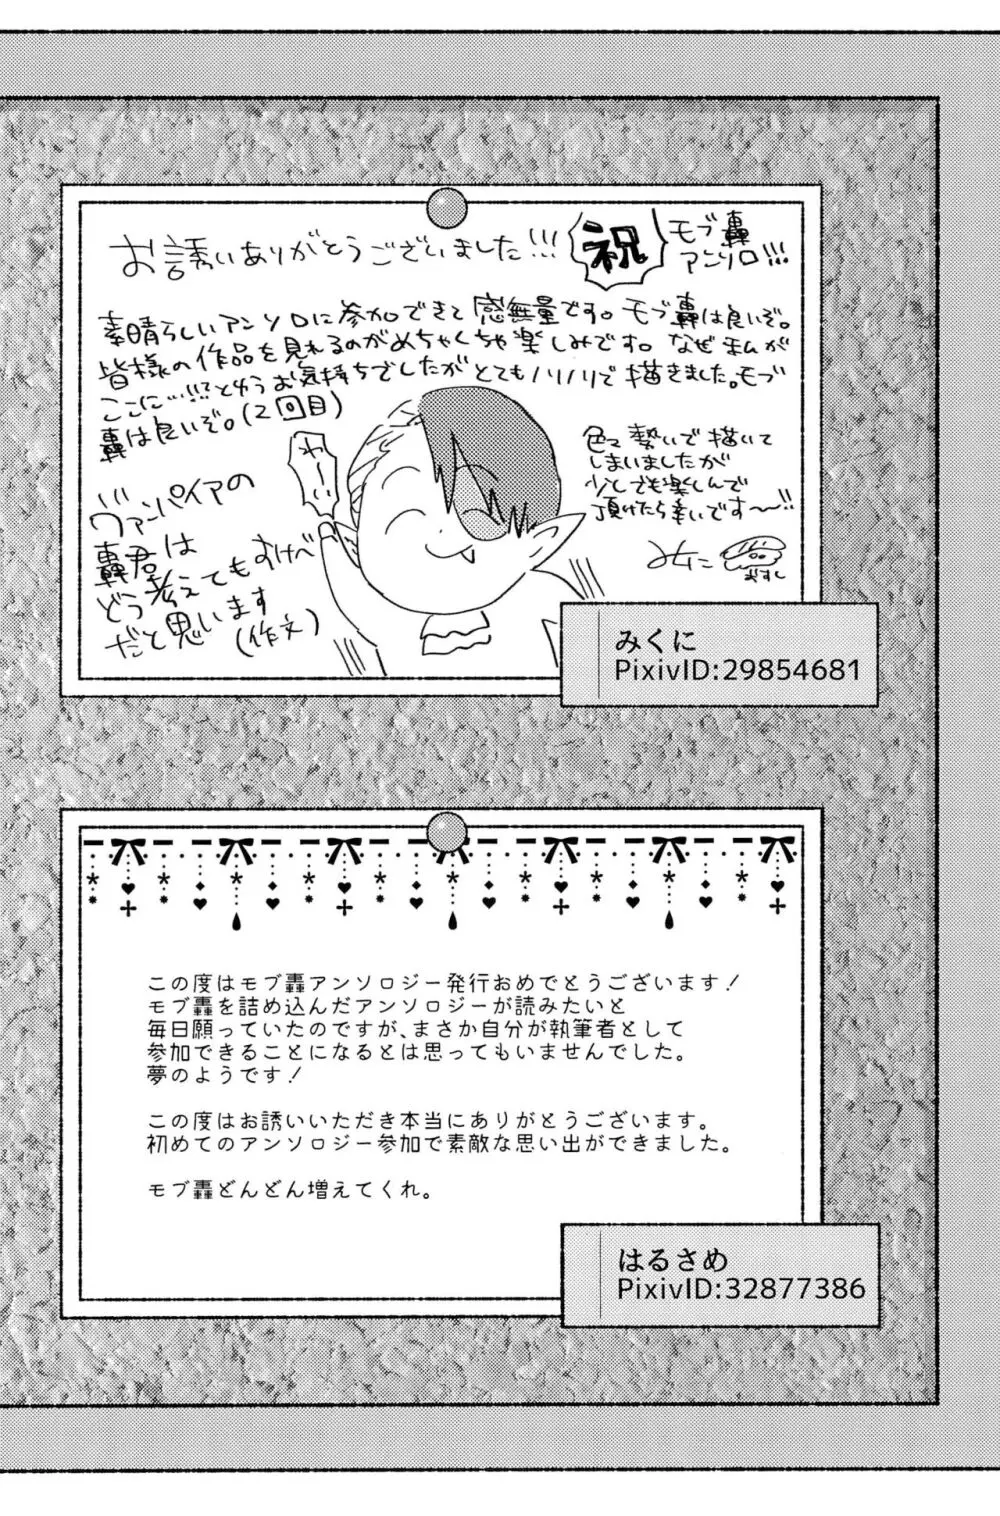 お誘いありがとうございました!!!
祝
モブ轟
アンソロ!!!
素晴らしいアンソロに参加できて感無量です。モブ轟は良いぞ。
皆様の作品を見れるのがめちゃくちゃ楽しみです。なぜまんが
ここに…!!!?とゆうお気持ちでしたがとてもノリノリで描きました。モブ
轟は良いぞ。(2回目)
わーい
色々勢いで描いて
しまいましたが
少しでも楽しんで
頂けたら幸いです〜!!
みくに
おすし
ヴァンパイアの
轟君は
どう考えてもすけべ
だと思います
(作文)
みくに
PixivID:29854681
この度はモブ轟アンソロジー発行おめでとうございます!
モブ轟を詰め込んだアンソロジーが読みたいと
毎日願っていたのですが、まさか自分が執筆者として
参加できることになるとは思ってもいませんでした。
夢のようです!
この度はお誘いいただき本当にありがとうございます。
初めてのアンソロジー参加で素敵な思い出ができました。
モブ轟どんどん増えてくれ。
はるさめ
PixivID:32877386